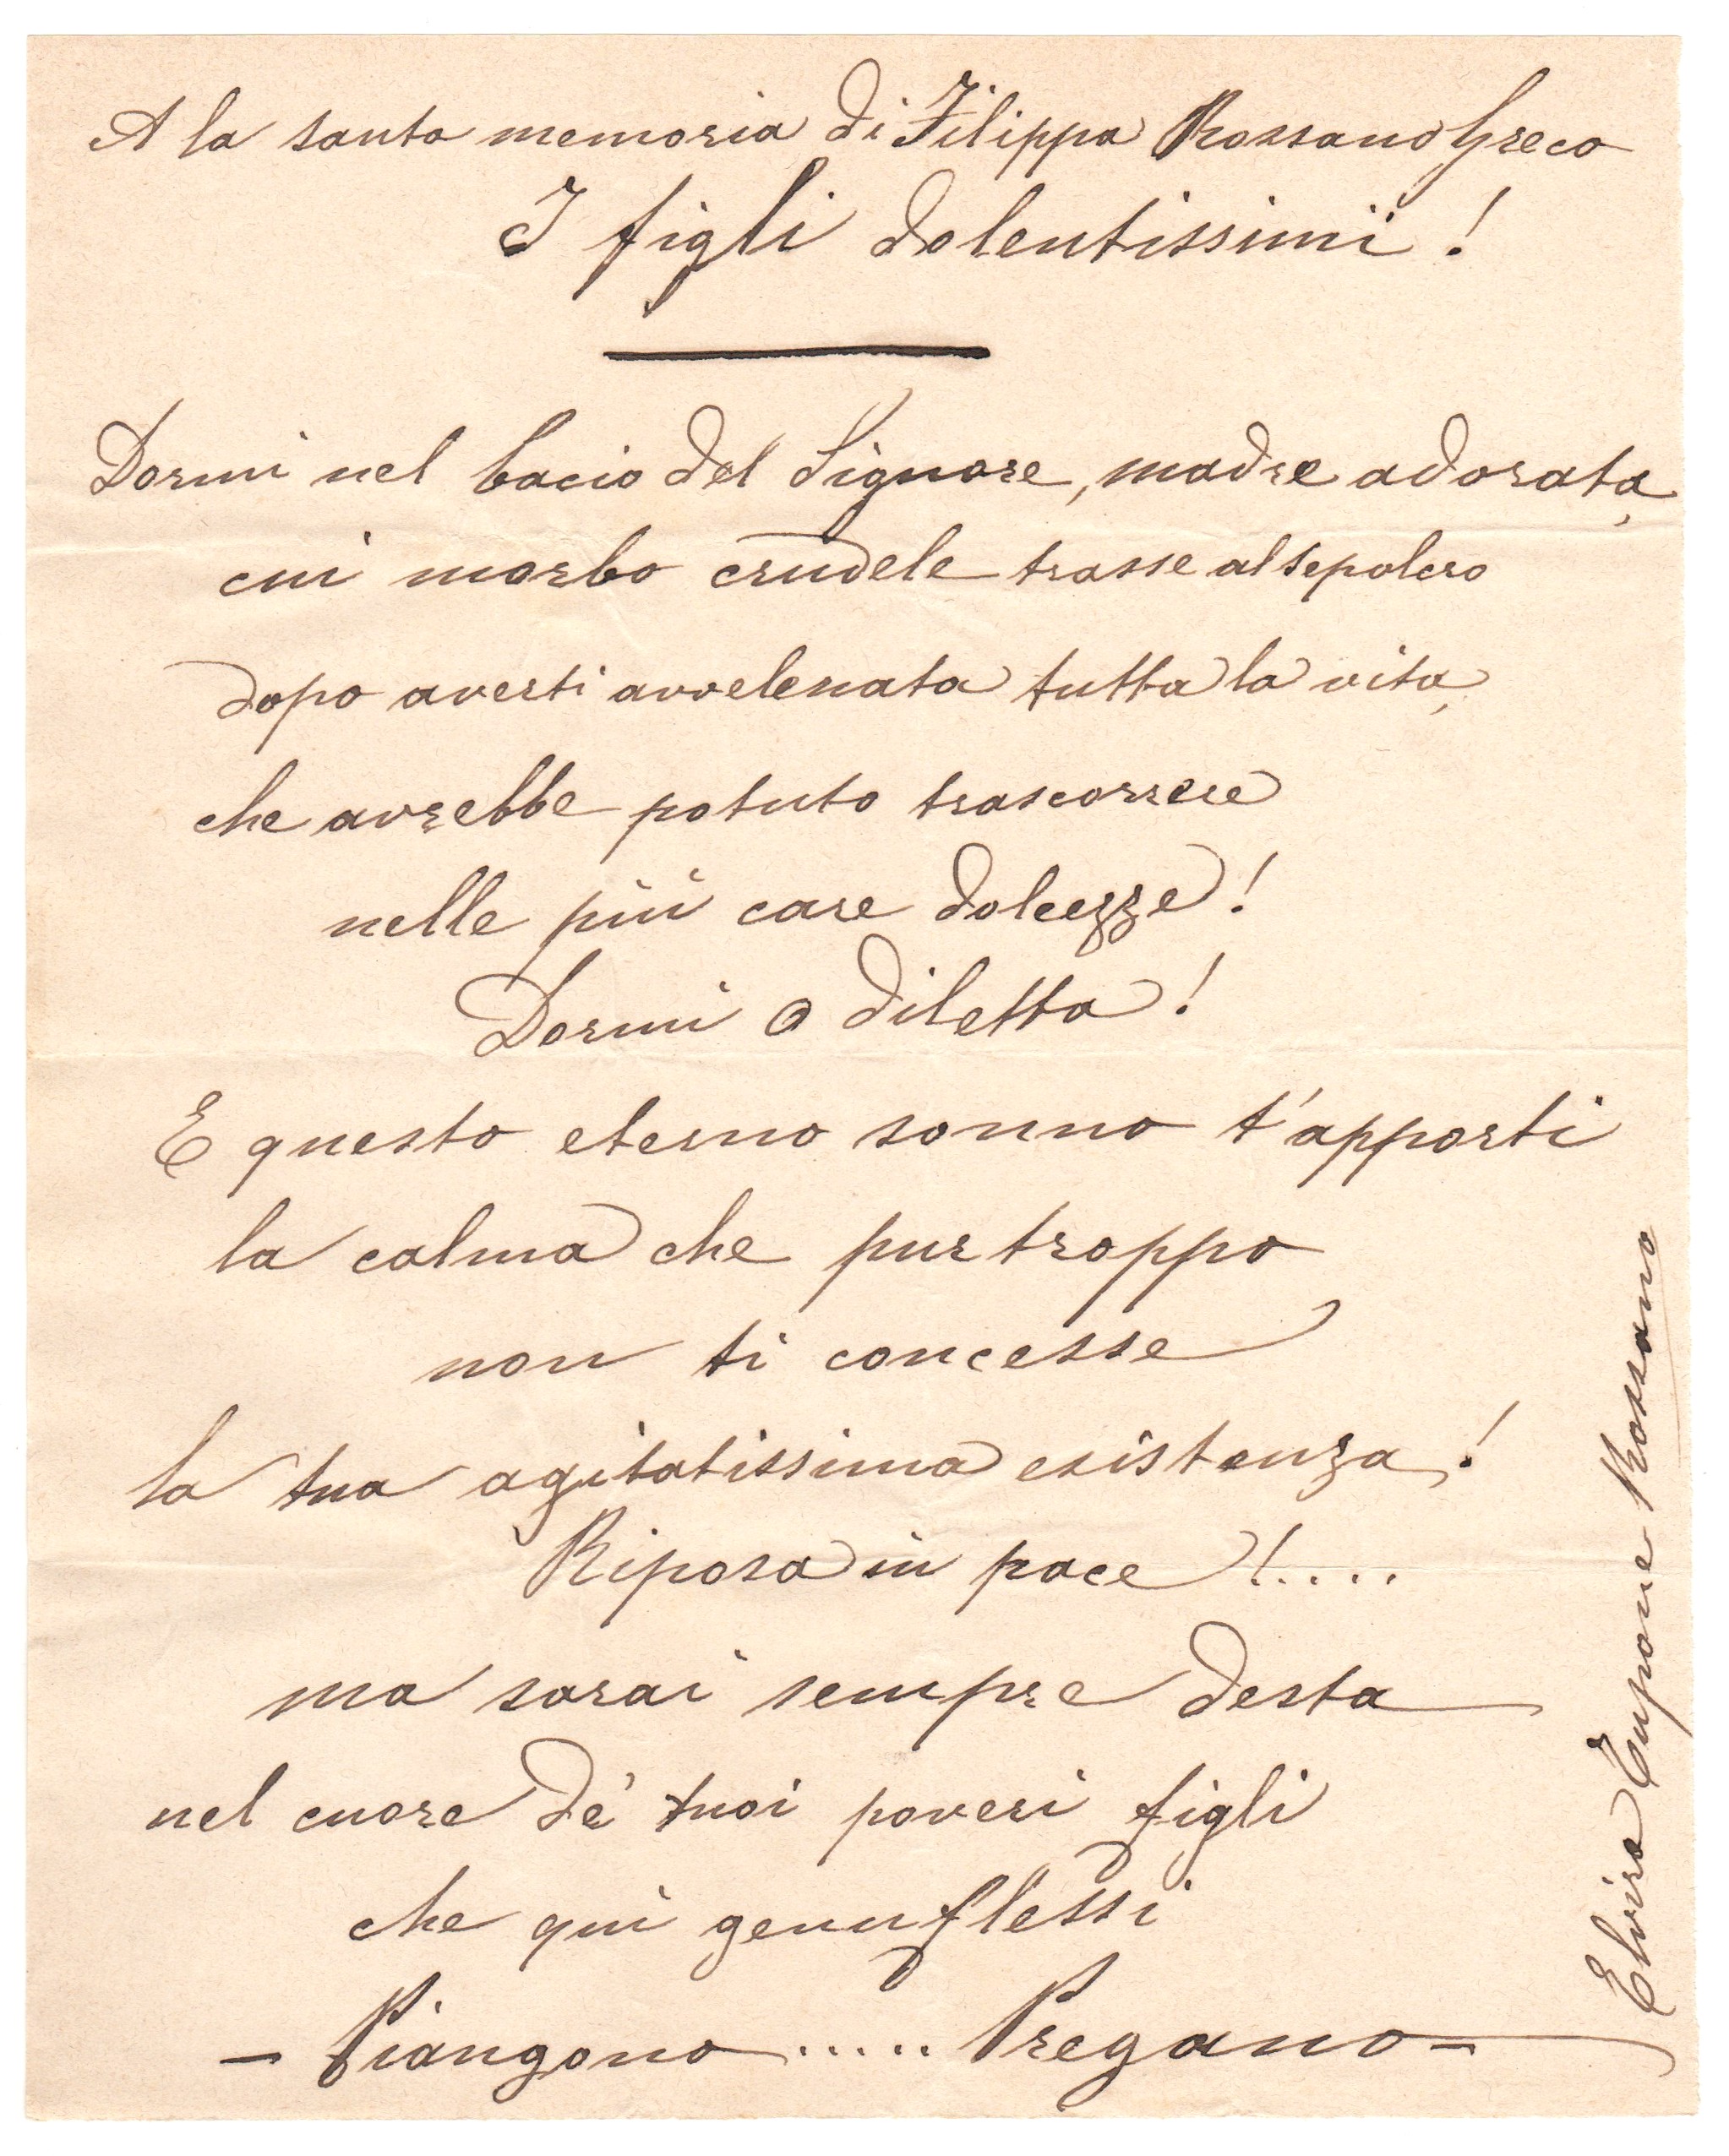 A la santa memoria di Filippa Rossano Greco
I figli dolentissimi !
Dormi nel bacio del Signore, madre adorata,
cui morbo crudele trasse al sepolcro
dopo averti avvelenata tutta la vita,
che avrebbe potuto trascorrere
nelle più care dolcezze !
Dormi o diletta !
E questo eterno sonno t'apporti
la calma che pur troppo
non ti concesse
la tua agitatissima esistenza !
Riposa in pace !....
ma sarai sempre desta
nel cuore de' tuoi poveri figli
che qui genuflessi
- Piangono ..... Pregano -
Elvira Rossano